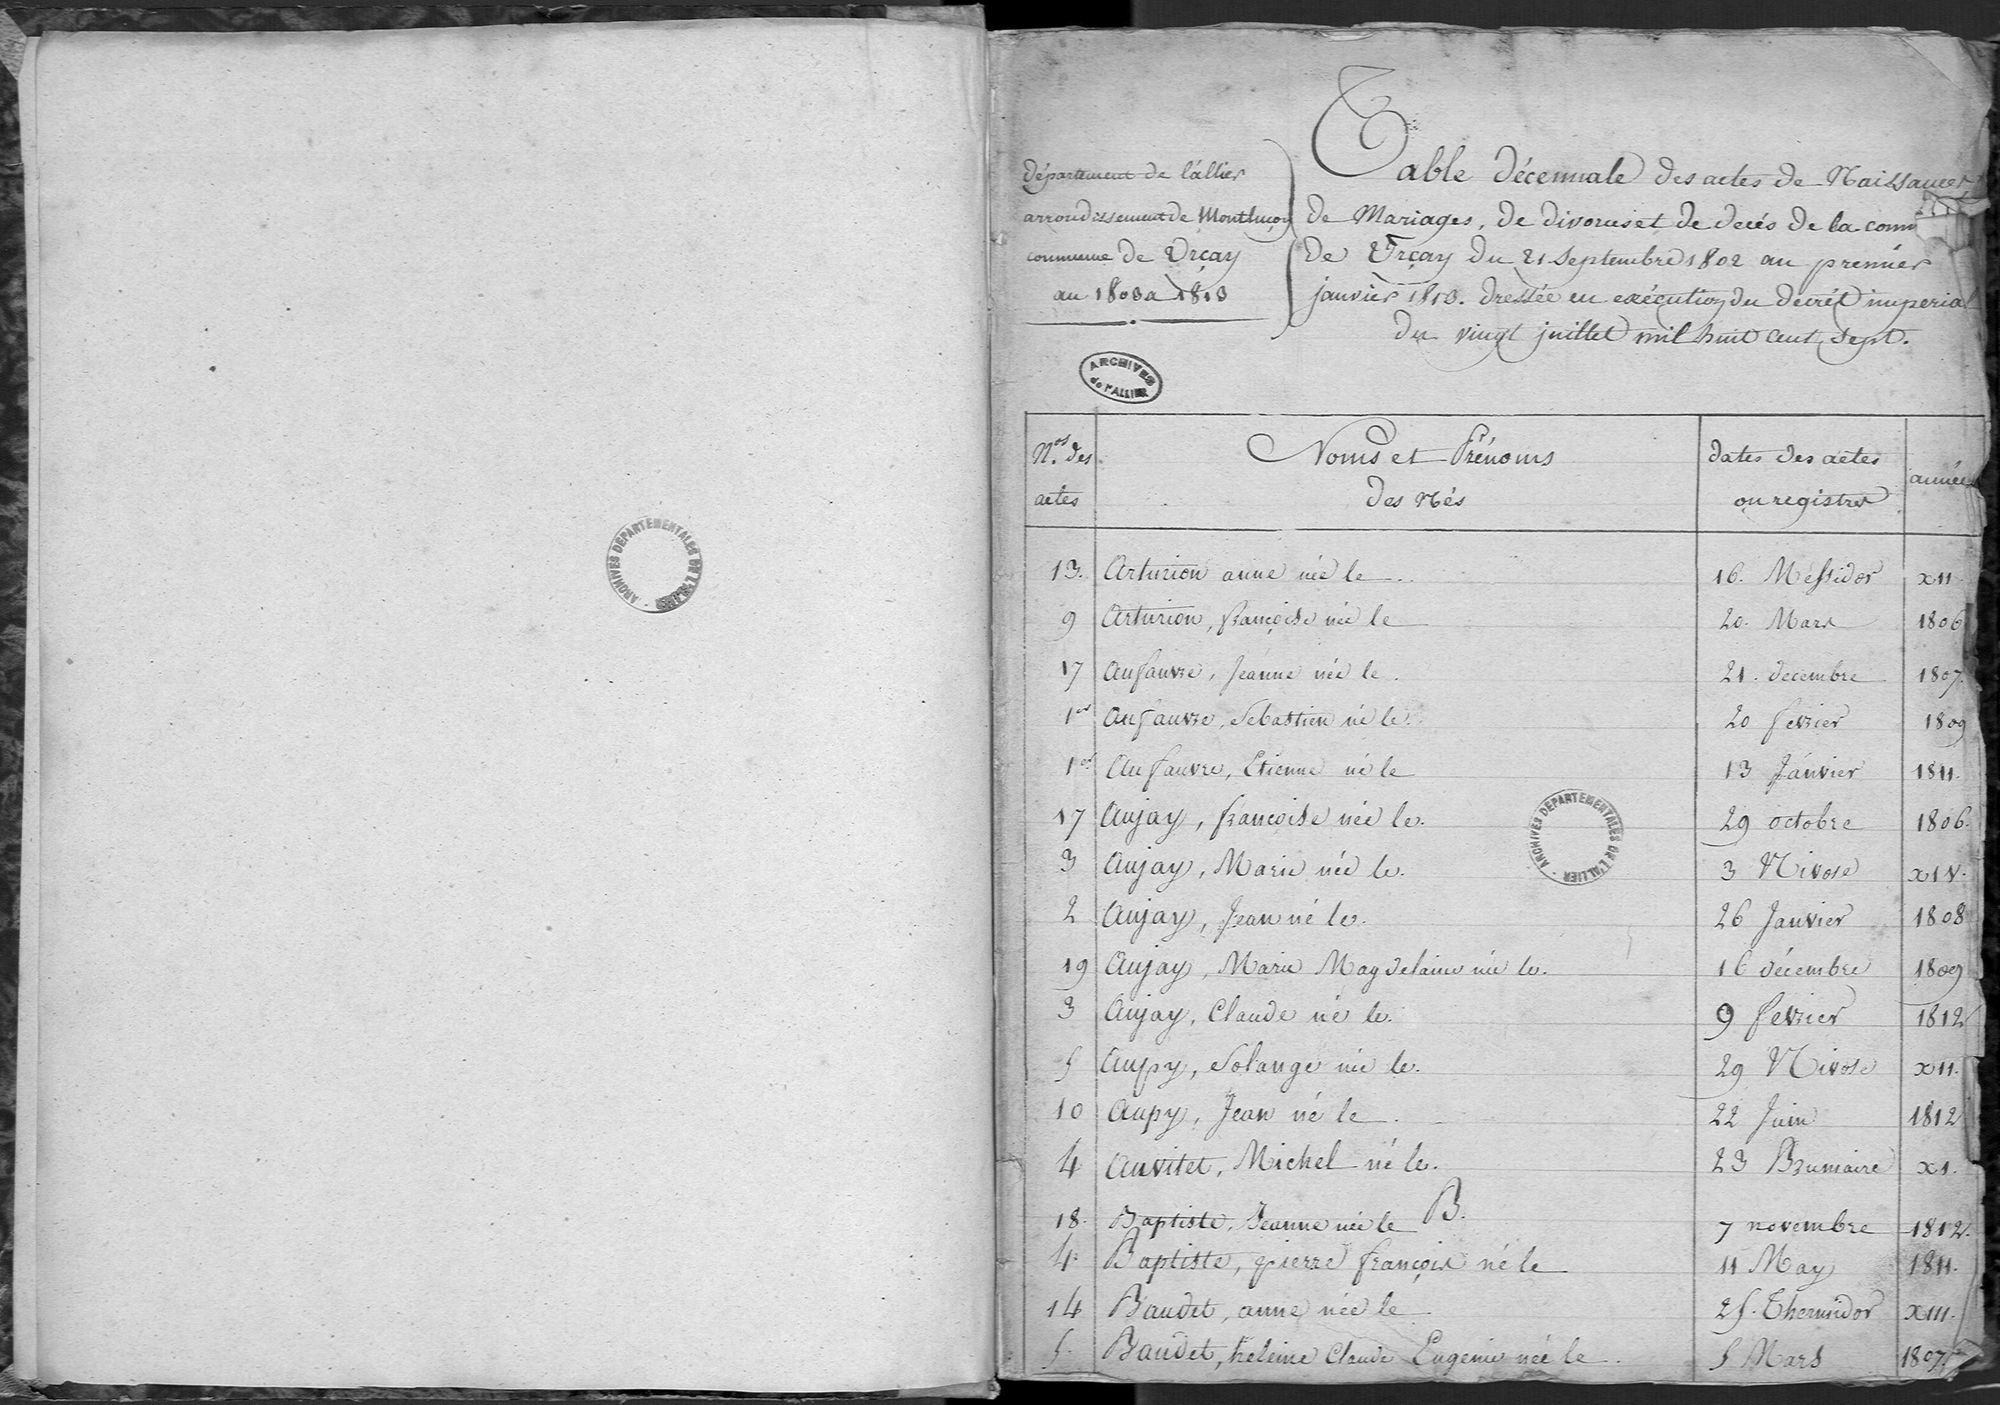 ARCHIVES DEPARTEMENTALES DE L'ALLIER
département de l'allier
arrondissement de Montluçon
commune de Urçay
an 1803 a 1813
Table Décennale des actes de Naissances,
de Mariages, de divorces et de decés de la comm
de Urçay du 21 Septembre 1802 au premier
janvier 1813. dressée en exécution du decrét imperial
du vingt juillet mil huit cent sept.
ARCHIVES
de l'ALLIER
N.os des actes
Noms et Prénoms
des Nés
dates des actes
ou registres
année
13. Arturion anne née le 16. Messidor XII.
9 Arturion, françoise née le 20. Mars 1806
17 Aufauvre, Jeanne née le 21. decembre 1807.
1er Aufauvre, Sebastien né le. 20 fevrier 1809
1er Aufauvre, Etienne né le 13 Janvier 1811.
17 Aujay, françoise née le. 29 octobre 1806.
3 Aujay, Marie née le. 3 Nivose XIV.
2 Aujay, Jean né le. 26 Janvier 1808
19 Aujay, Marie Magdelaine née le. 16 décembre 1809
3 Aujay, Claude né le. 9 fevrier 1812
5 Aupy, Solange née le. 29 Nivose XII.
10 Aupy, Jean né le. 22 Juin 1812
4 Auvitet, Michel né le. 23 Brumaire XI.
B.
18. Baptiste, Jeanne née le 7 novembre 1812.
4. Baptiste, pierre françois né le 11 May 1811.
14 Baudet, anne née le 25. Thermidor XIII.
5. Baudet, heleine Claude Eugenie née le. 5 Mars 1807.
ARCHIVES DEPARTEMENTALES DE L'ALLIER